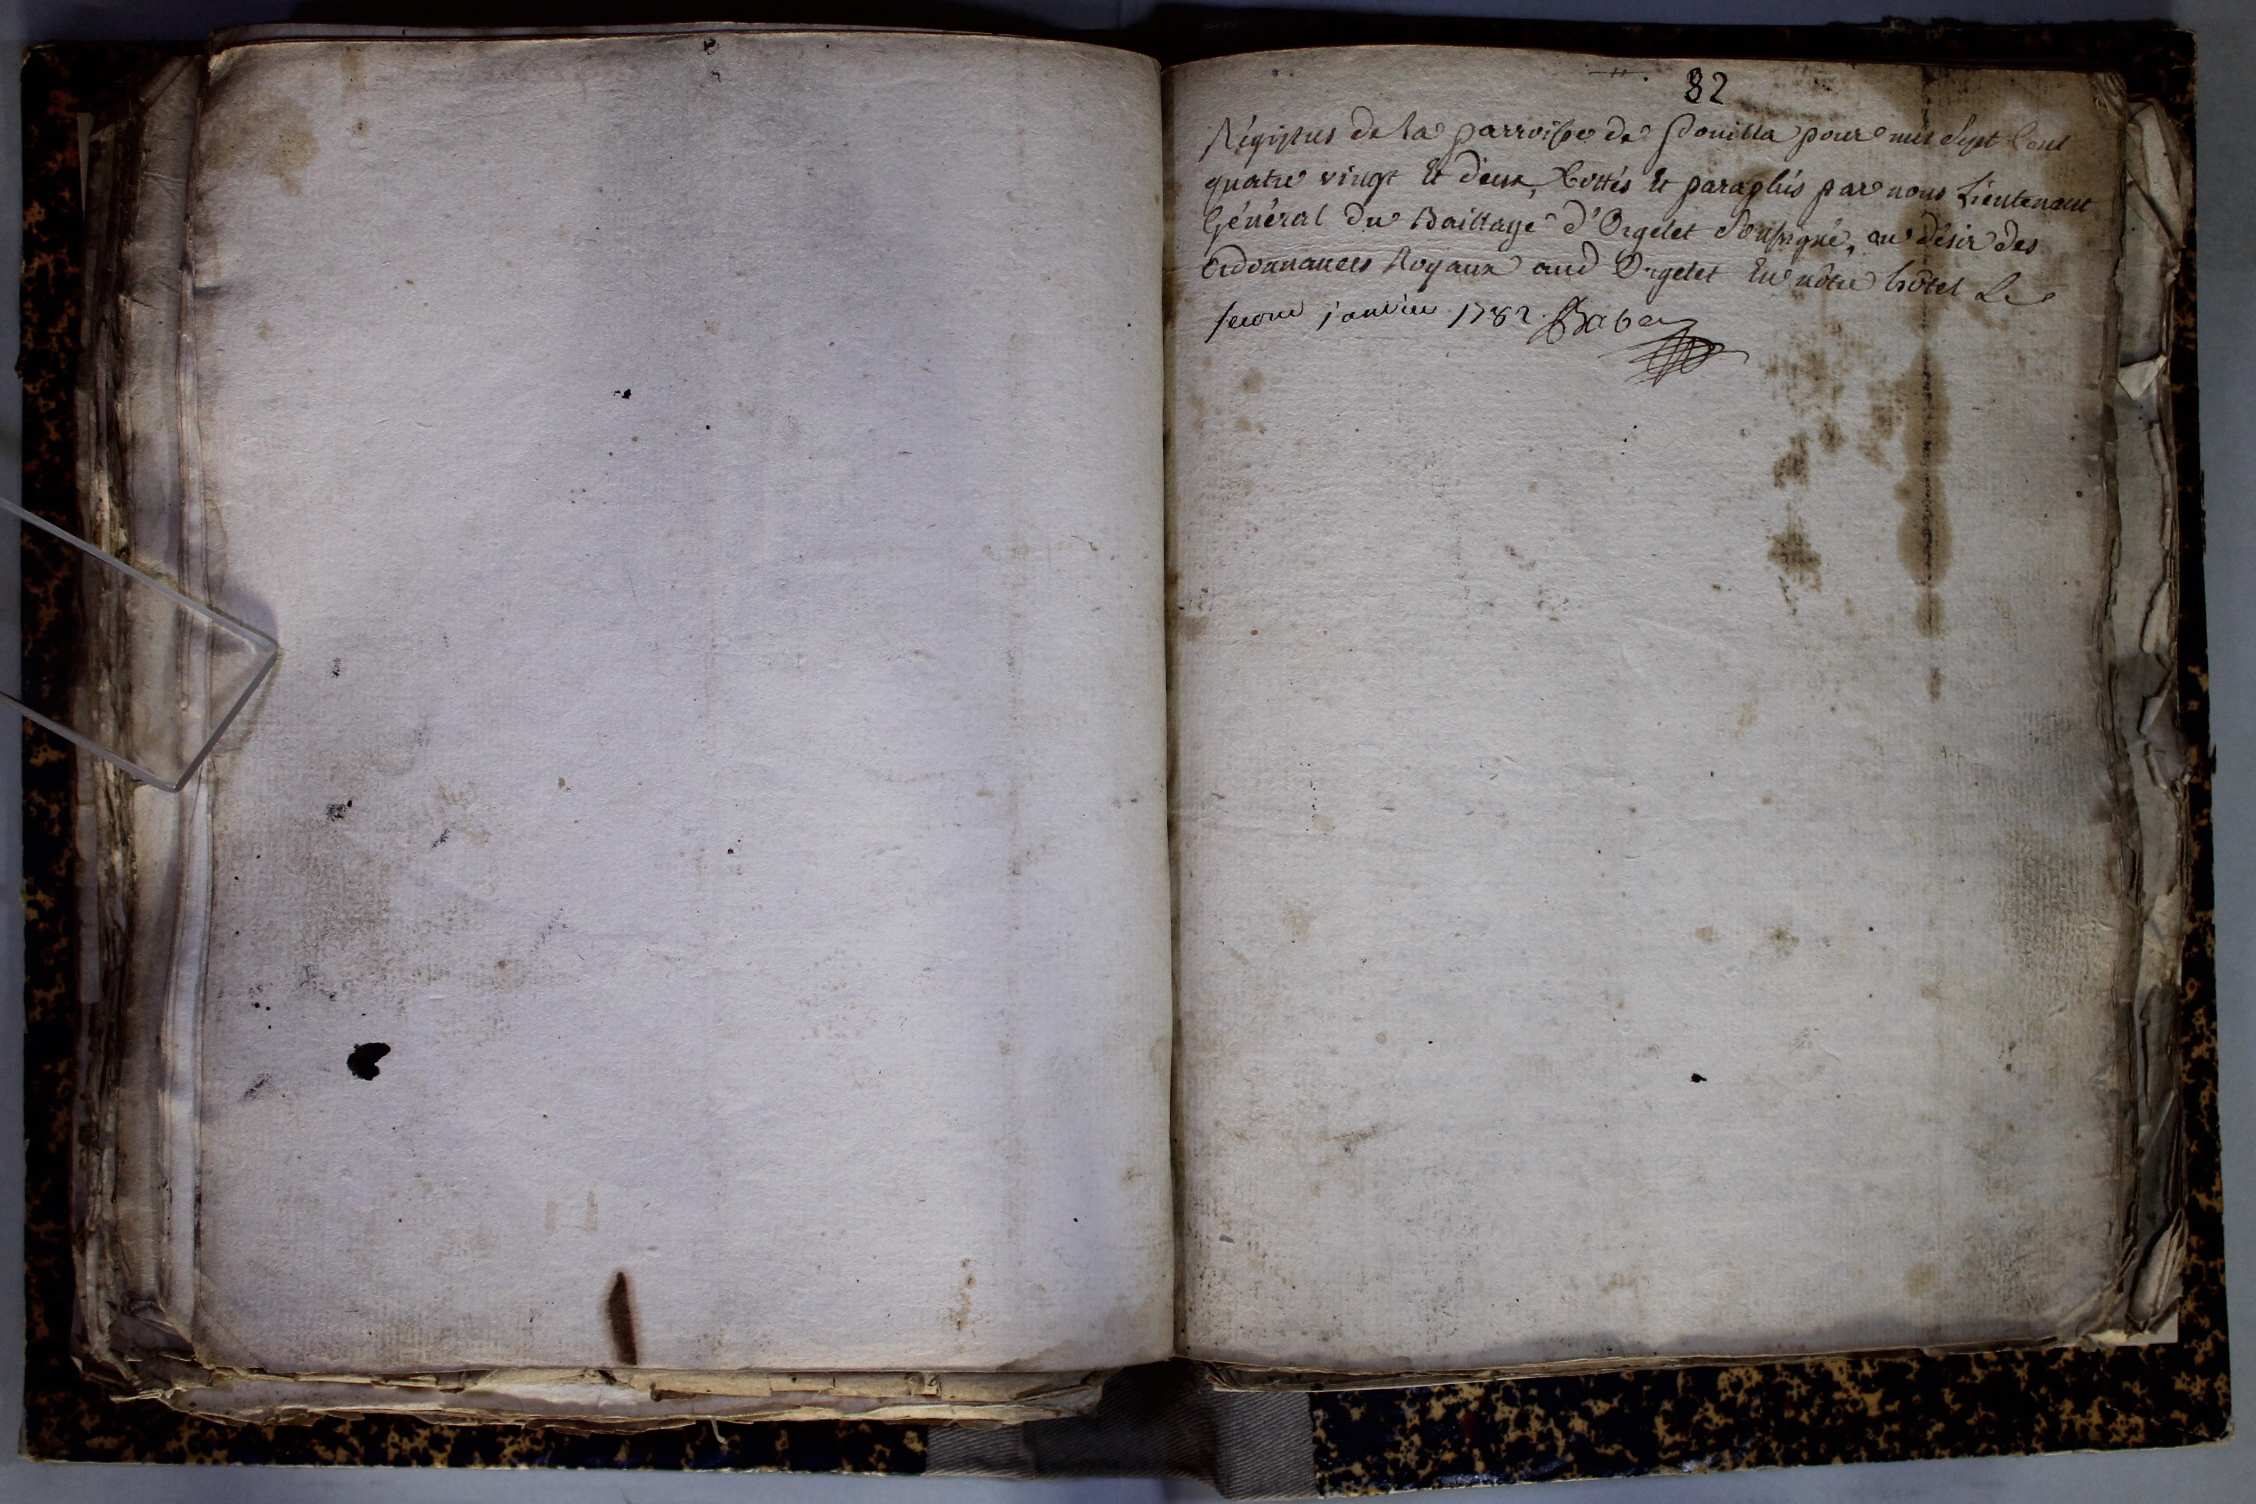 82
Régistres de la parroisse de Pouilla pour mil sept Cent
quatre vingt Et deux, Cottés Et paraphés par nous Lieutenant
Général du Baillage d'Orgelet Soussigné, au désir des
ordonnances Royaux aud Orgelet En nôtre hôtel Le
second janvier 1782.